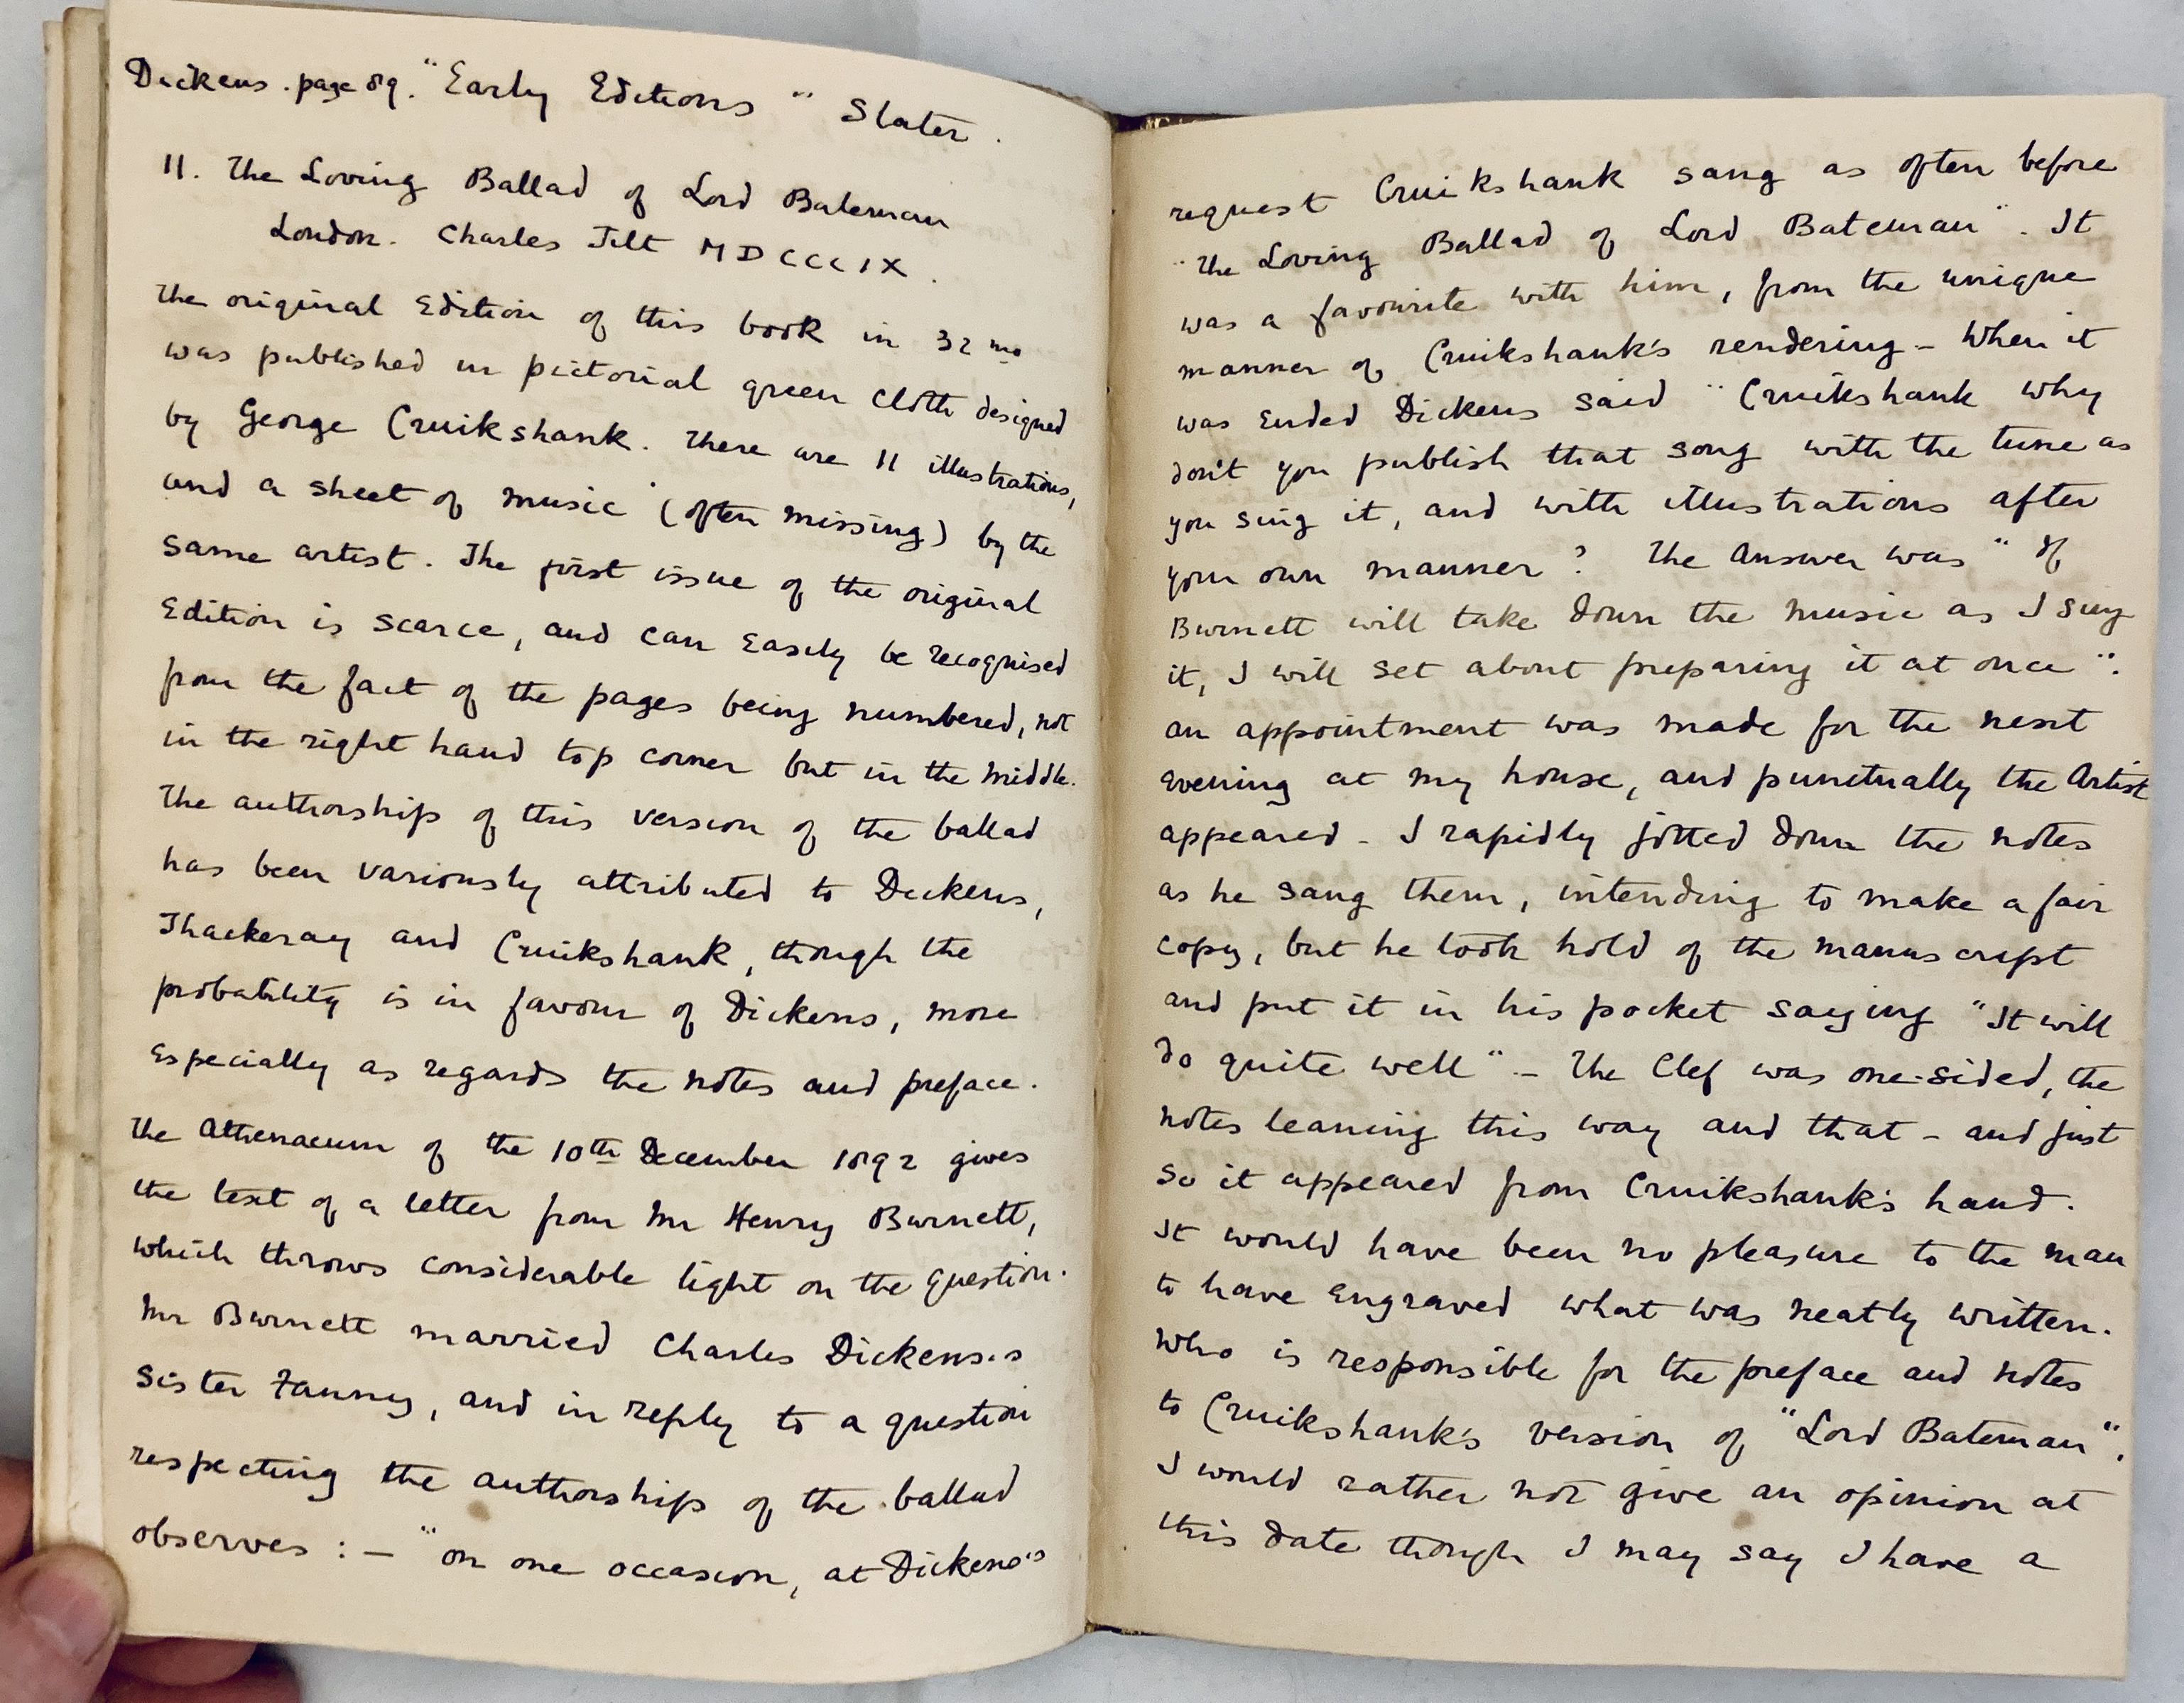 Dickens . page 89. "Early Editions" Slater.
11. The Loving Ballad of Lord Bateman
London. Charles Tilt MDCCCIX.
The original Edition of this book in 32 mo
was published in pictorial green cloth designed
by George Cruikshank. There are 11 illustrations,
and a sheet of music (often missing) by the
same artist. The first issue of the original
Edition is scarce, and can Easily be recognised
from the fact of the pages being numbered, not
in the right hand top corner but in the middle.
The authorship of this version of the ballad
has been variously attributed to Dickens,
Thackeray and Cruikshank, though the
probability is in favour of Dickens, more
Especially as regards the notes and preface.
The Athenaeum of the 10th December 1892 gives
the text of a letter from Mr Henry Burnett,
which throws considerable light on the question.
Mr Burnett married Charles Dickens's
Sister Fanny, and in reply to a question
respecting the authorship of the ballad
observes :— "on one occasion, at Dickens's
request Cruikshank sang as often before
"The Loving Ballad of Lord Bateman". It
was a favourite with him, from the unique
manner of Cruikshank's rendering — When it
was Ended Dickens said "Cruikshank why
don't you publish that song with the tune as
you sing it, and with illustrations after
your own manner? The Answer was "If
Burnett will take down the music as I sing
it, I will set about preparing it at once".
an appointment was made for the next
Evening at my house, and punctually the Artist
appeared - I rapidly jotted down the notes
as he sang them, intending to make a fair
copy, but he took hold of the manuscript
and put it in his pocket saying "It will
do quite well" - The Clef was one-sided, the
notes leaning this way and that - and just
so it appeared from Cruikshank's hand.
It would have been no pleasure to the man
to have Engraved what was neatly written.
Who is responsible for the preface and notes
to Cruikshank's version of "Lord Bateman".
I would rather not give an opinion at
this date though I may say I have a